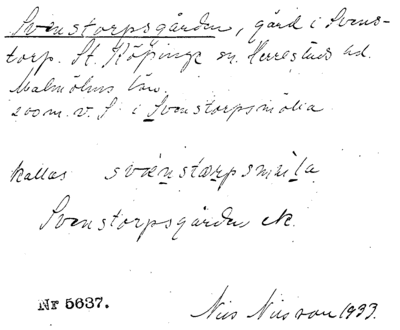 Svenstorpsgården, gård i Svens-
torp. St. Köpinge sn. Herrestads hd.
Malmöhus län.
200 m. v. S. i Svenstorpsmölla
kallas svænstærpsmɶla
Svenstorpsgården ek.
Nr 5637.
Nils Nilsson 1933.